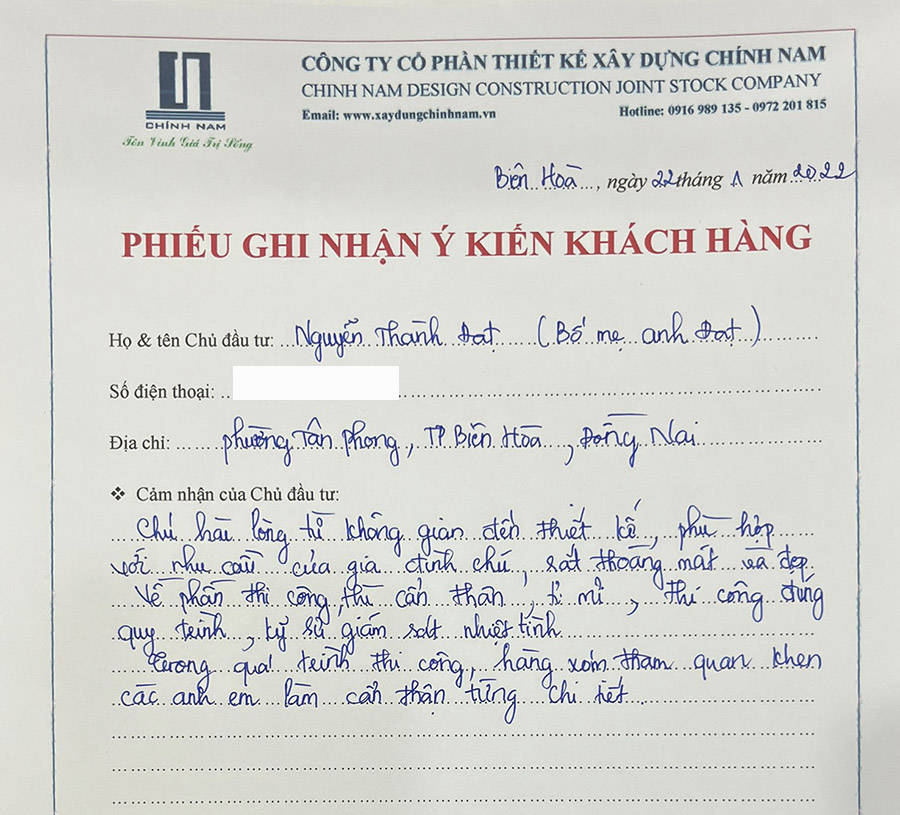 CHÍNH NAM
Tôn Vinh Giá Trị Sống
CÔNG TY CỔ PHẦN THIẾT KẾ XÂY DỰNG CHÍNH NAM
CHINH NAM DESIGN CONSTRUCTION JOINT STOCK COMPANY
Email: www.xaydungchinhnam.vn Hotline: 0916 989 135 - 0972 201 815
Biên Hoà, ngày 22 tháng 1 năm 2022
PHIẾU GHI NHẬN Ý KIẾN KHÁCH HÀNG
Họ & tên Chủ đầu tư: Nguyễn Thành Đạt (Bố mẹ anh Đạt)
Số điện thoại:
Địa chỉ: phường Tân Phong, TP Biên Hòa, Đồng Nai
❖ Cảm nhận của Chủ đầu tư:
Chú hài lòng từ không gian đến thiết kế, phù hợp
với nhu cầu của gia đình chú, rất thoáng mát và đẹp
Về phần thi công, thì cẩn thận, tỉ mỉ, thi công đúng
quy trình, kỹ sư giám sát nhiệt tình
Trong quá trình thi công, hàng xóm tham quan khen
các anh em làm cẩn thận từng chi tiết.